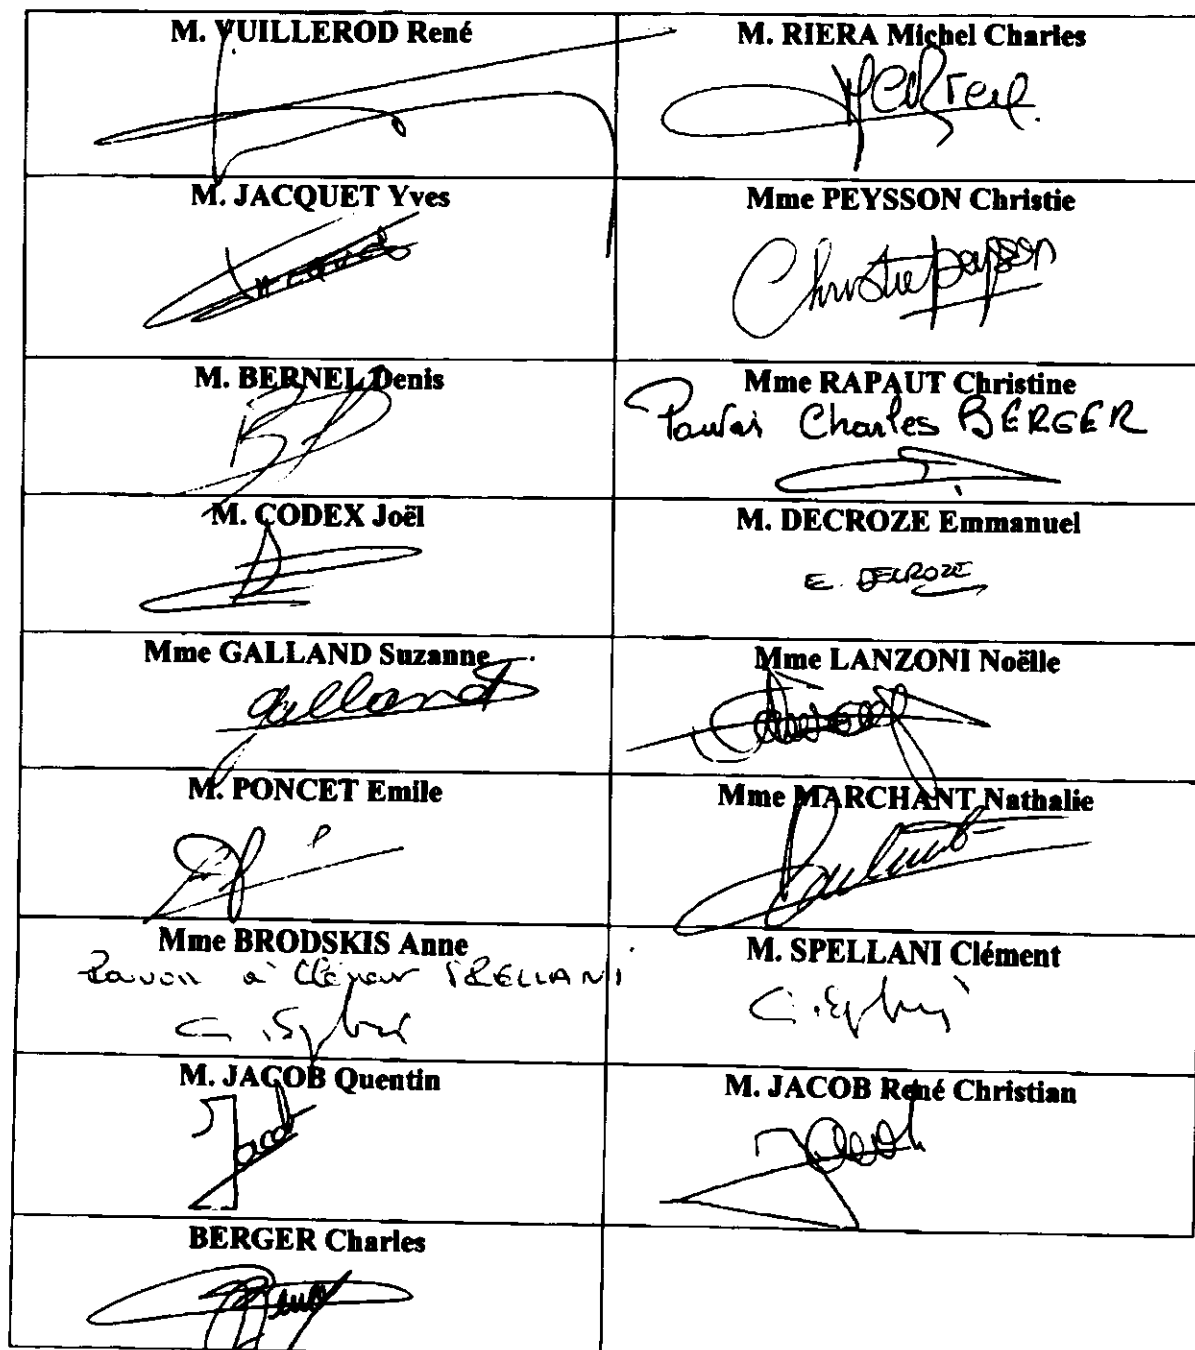 M. VUILLEROD René
M. RIERA Michel Charles
M. JACQUET Yves
Mme PEYSSON Christie
Christie peysson
M. BERNEL Denis
Mme RAPAUT Christine
Charles BERGER
M. CODEX Joël
M. DECROZE Emmanuel
E. DECROZE
Mme GALLAND Suzanne
galland
Mme LANZONI Noëlle
M. PONCET Emile
Mme MARCHANT Nathalie
Mme BRODSKIS Anne
à Clément SPELLANI
M. SPELLANI Clément
M. JACOB Quentin
Jacob
M. JACOB René Christian
Jacob
BERGER Charles